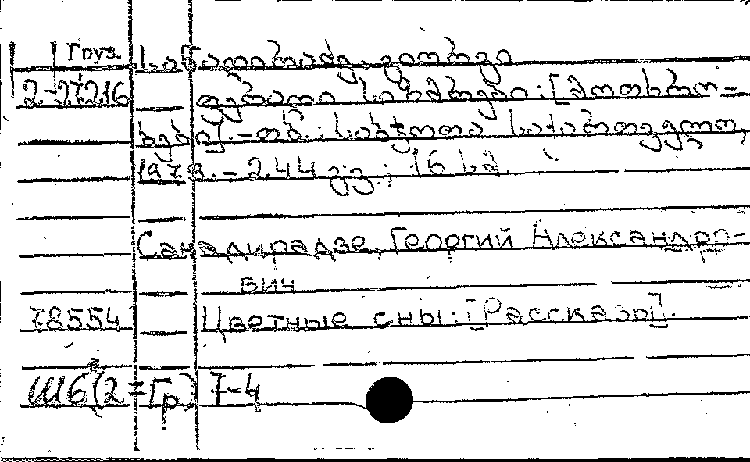 Груз. სანადირაძე, გიორგი
2-27216 ფერადი სიზმრები : [მოთხრო-
ბები]. - თბ. : საბჭოთა საქართველო,
1978. - 244 გვ. ; 16 სმ.
Санадирадзе, Георгий Александро-
вич
78554 Цветные сны : [Рассказы].
Ш6(2=Гр) 7-4